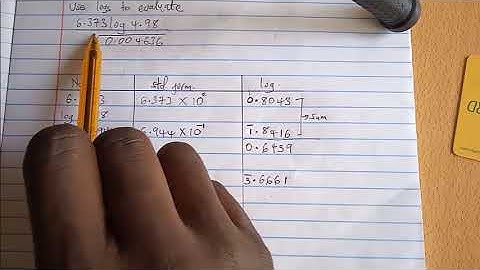 Use logs to evaluate
6.373 log 4.98
0.004636
std form log
6.373 × 10° 0.8043
log
6.944 × 10⁻¹ 1̄.8416 sum
0.6459
3̄.6661